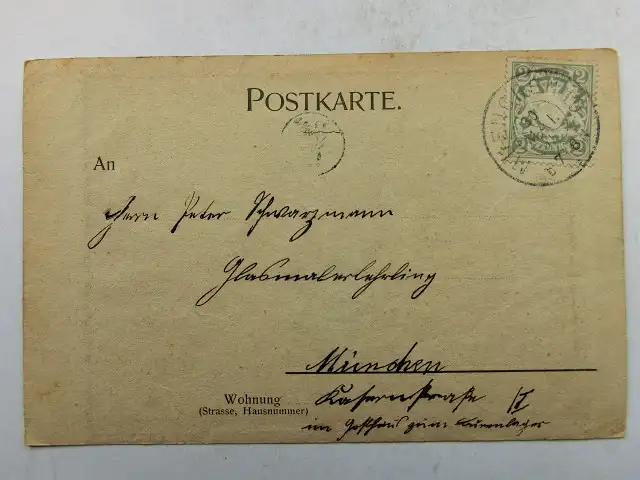 POSTKARTE.
2 2
An
Herrn Peter Schwarzmann
Glasmalerlehrling
München
Wohnung
(Strasse, Hausnummer)
Kasernstraße /I
im Gasthaus zum